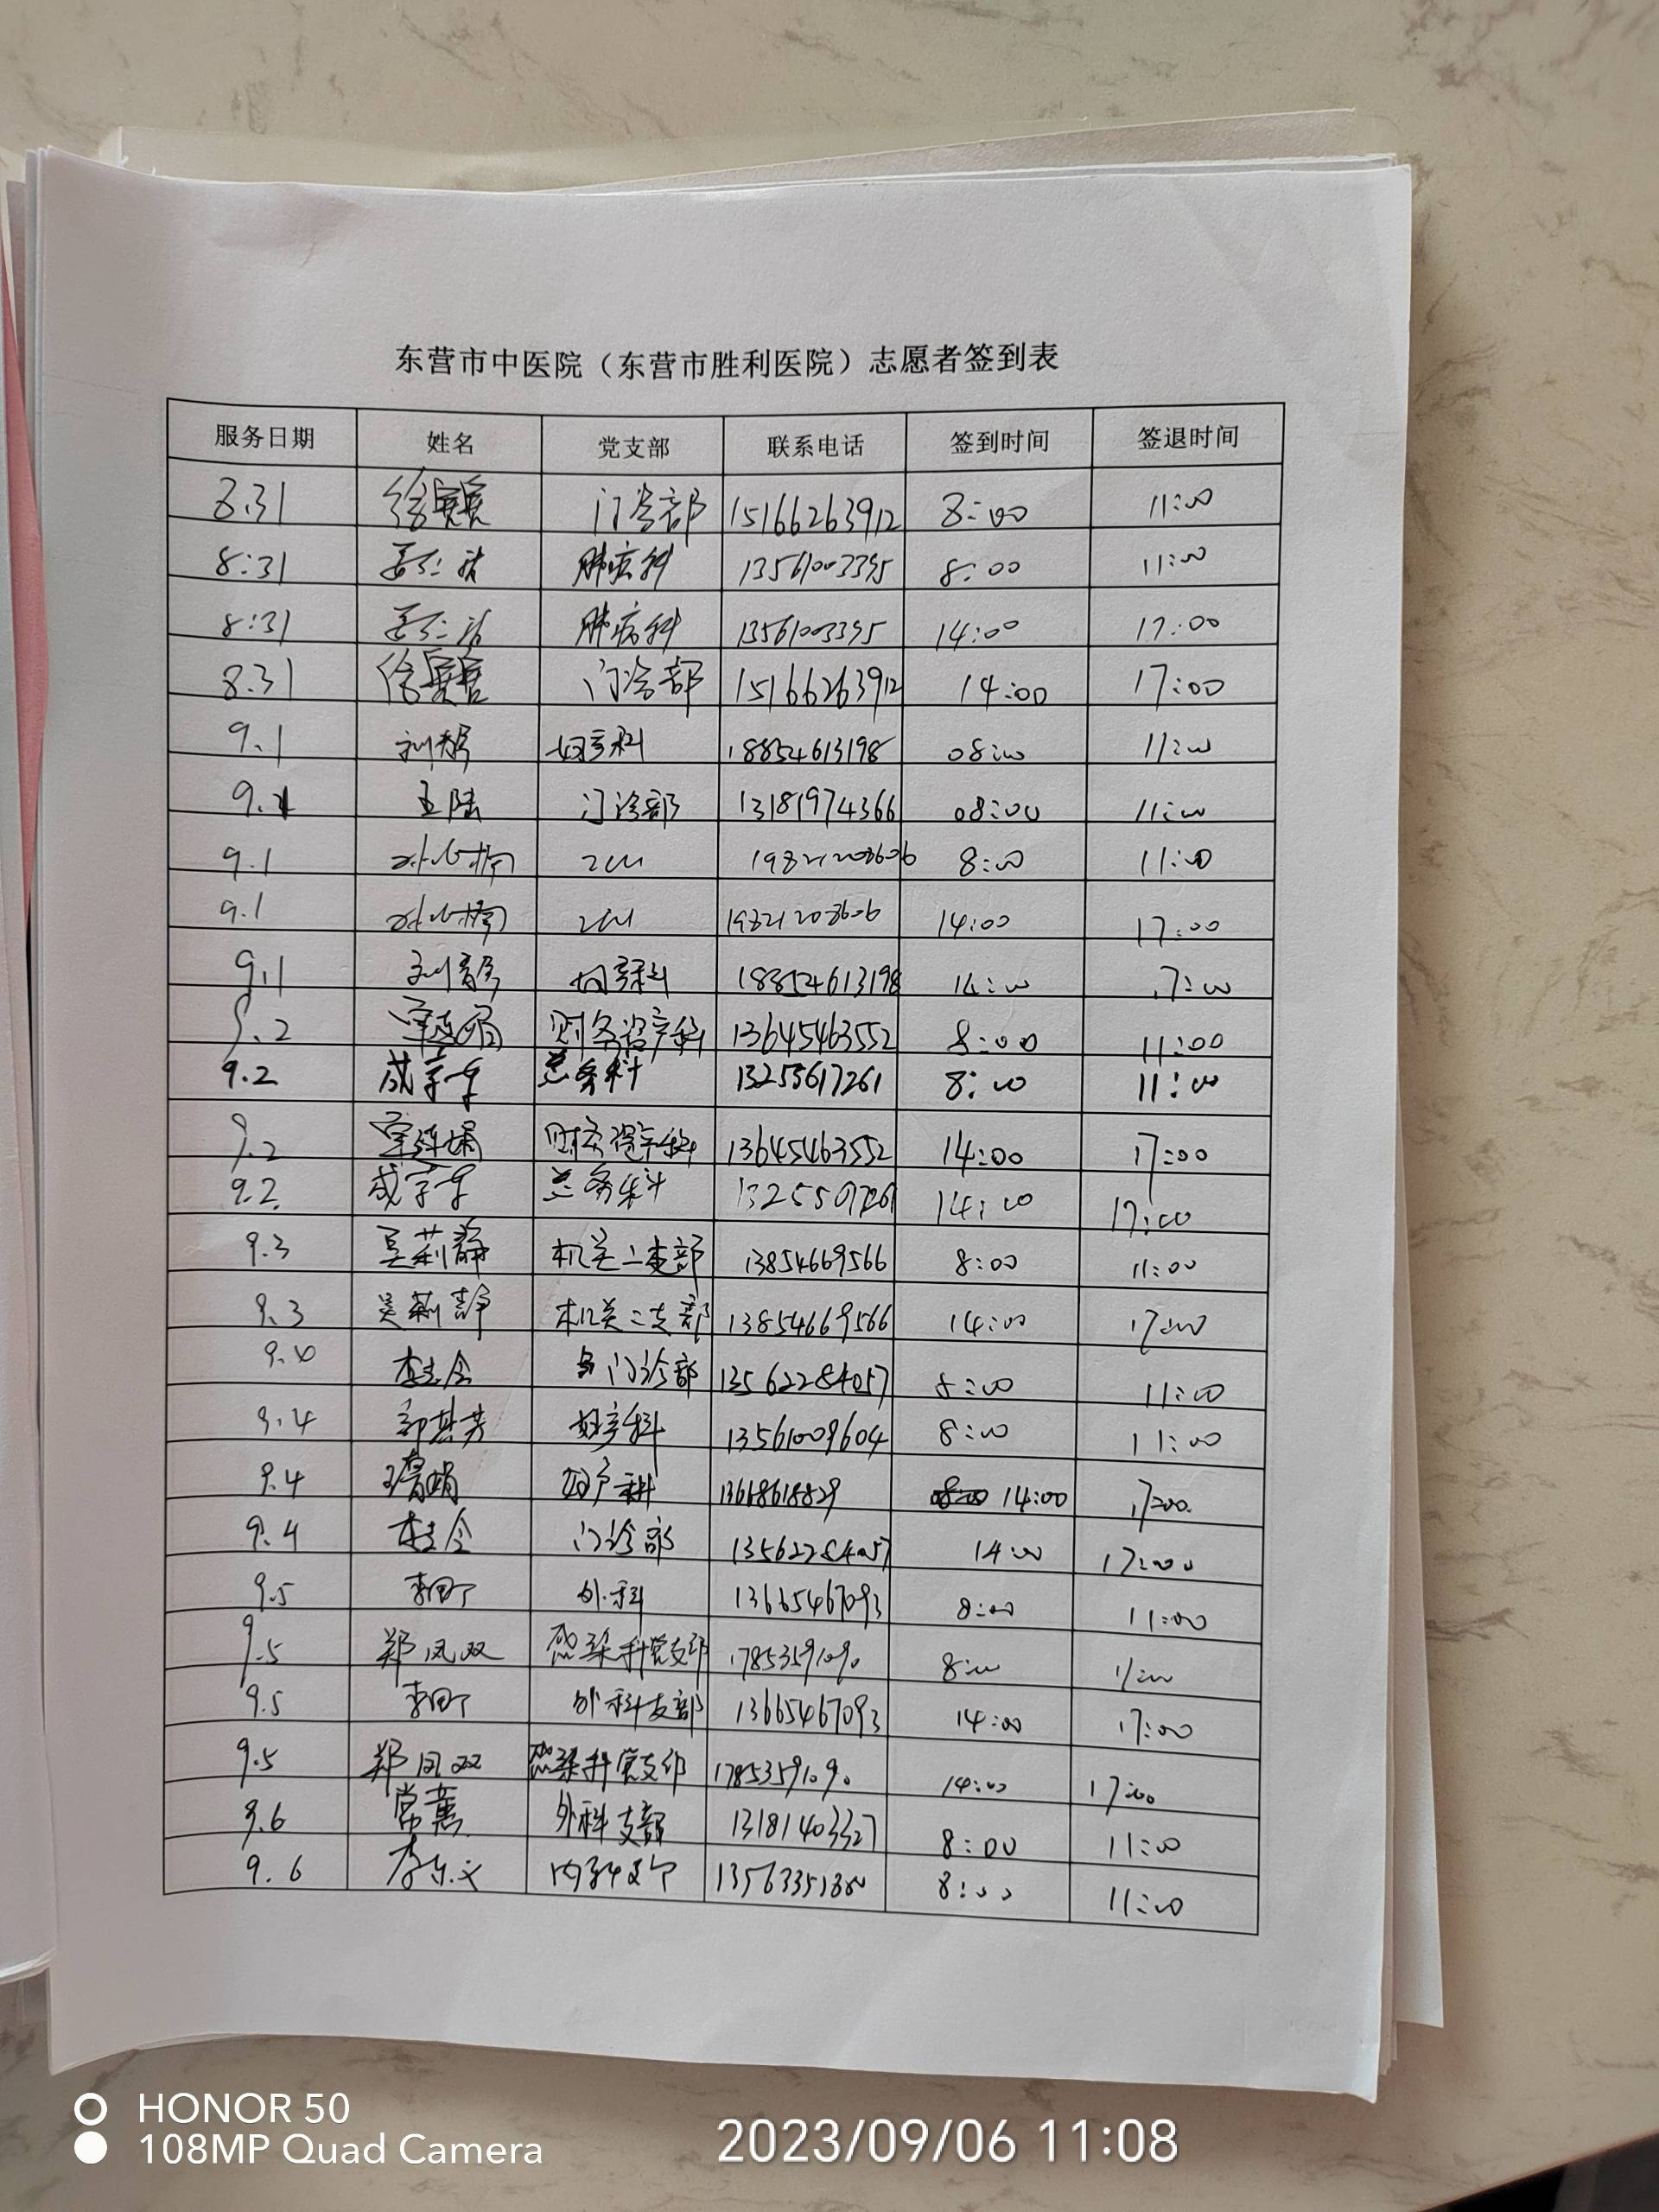 东营市中医院（东营市胜利医院）志愿者签到表
服务日期 姓名 党支部 联系电话 签到时间 签退时间
8.31 门诊部 15166263912 8:00 11:00
8:31 肺病科 13561003395 8:00 11:00
8:31 肺病科 13561003395 14:00 17:00
8.31 门诊部 15166263912 14:00 17:00
9.1 妇产科 18854613198 08:00 11:00
9.1 王陆 门诊部 13181974366 08:00 11:00
9.1 ICU 8:00 11:00
9.1 ICU 14:00 17:00
9.1 妇产科 18854613198 14:00 17:00
9.2 财务资产科 13645463552 8:00 11:00
9.2 总务科 13255617261 8:00 11:00
9.2 财务资产科 13645463552 14:00 17:00
9.2 总务科 14:00 17:00
9.3 吴莉静 机关二支部 13854669566 8:00 11:00
9.3 吴莉静 机关二支部 13854669566 14:00 17:00
9.4 门诊部 13562284057 8:00 11:00
9.4 妇产科 13561009604 8:00 11:00
9.4 妇产科 13618618829 14:00 17:00
9.4 门诊部 13562284057 14:00 17:00
9.5 外科 13665467093 8:00 11:00
9.5 郑凤双 感染科党支部 17853591090 8:00 11:00
9.5 外科支部 13665467093 14:00 17:00
9.5 郑凤双 感染科党支部 17853591090 14:00 17:00
9.6 常蕙 外科支部 13181403327 8:00 11:00
9.6 内科支部 8:00 11:00
HONOR 50
108MP Quad Camera
2023/09/06 11:08